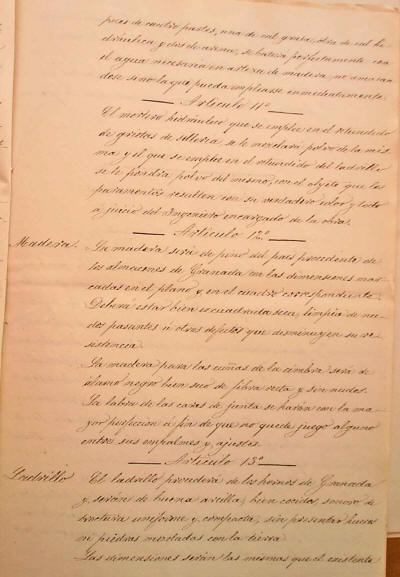 pues de cuatro partes, una de cal grasa, otra de cal hi-
dráulica y dos de arena, se batirá perfectamente con
el agua necesaria en artesa de madera, no amasan-
dose sino la que pueda emplearse inmediatamente.
Artículo 11º
El mortero hidráulico que se emplee en el retundido
de grietas de sillería, se le mezclará polvo de la mis-
ma y el que se emplee en el retundido del ladrillo
se le pondrá polvo del mismo, con el objeto que los
paramentos resulten con su verdadero color, y todo
a juicio del Ingeniero encargado de la obra.
Artículo 12º
Madera. La madera será de pino del pais procedente de
los almacenes de Granada con las dimensiones mar-
cadas en el plano y en el cuadro correspondiente.
Deberá estar bien escuadrada seca, limpia de nu-
dos pasantes ú otros defectos que disminuyen su re-
sistencia.
La madera para las cuñas de la cimbra será de
álamo negro bien seco de fibra recta y sin nudos.
La labra de las caras de junta se harán con la ma-
yor perfeccion á fin de que no quede juego alguno
entre sus empalmes y ajustes.
Artículo 13º
Ladrillo El ladrillo procederá de los hornos de Granada
y serán de buena arcilla, bien cocidos, sonoro, de
tructura uniforme y compacta, sin presentar huecos
ni piedras mezcladas con la tierra.
Las dimensiones serán las mesmas que el existente